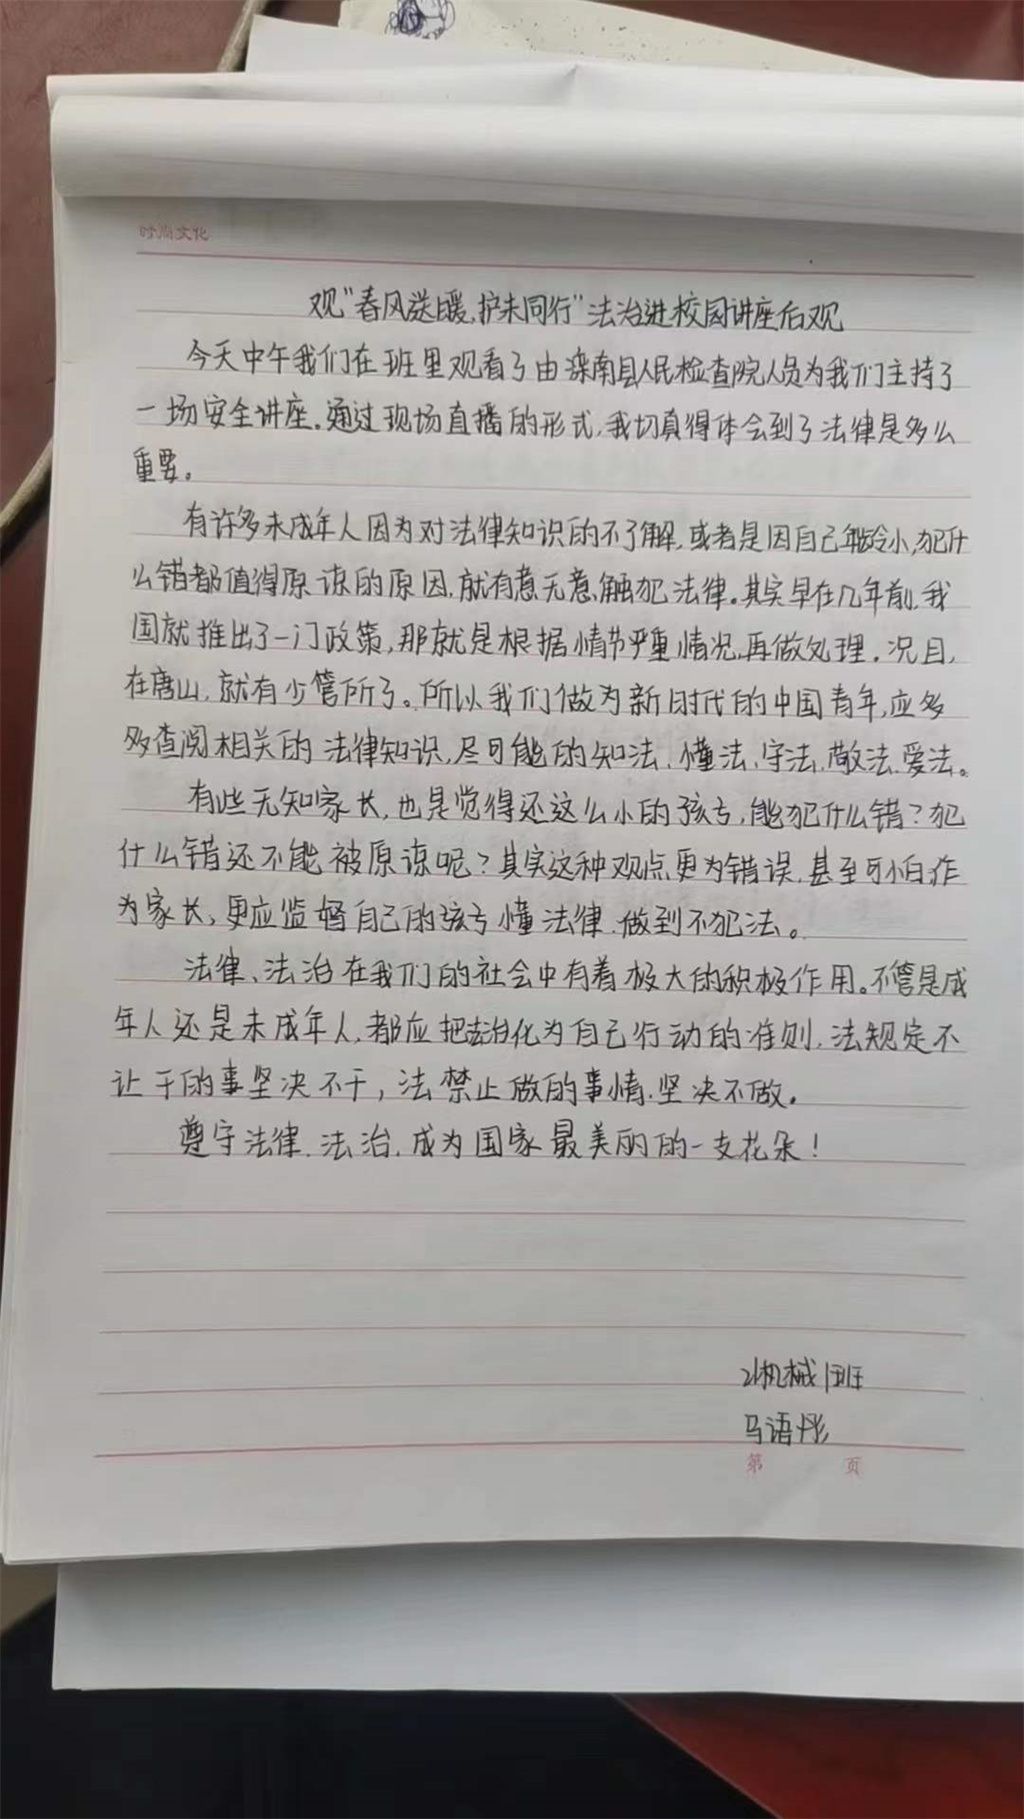 时尚文化
观“春风送暖,护未同行”法治进校园讲座后观
今天中午我们在班里观看了由滦南县人民检查院人员为我们主持了
一场安全讲座。通过现场直播的形式,我切真得体会到了法律是多么
重要。
有许多未成年人因为对法律知识的不了解,或者是因自己年龄小,犯什
么错都值得原谅的原因,就有意无意触犯法律。其实早在几年前,我
国就推出了一门政策,那就是根据情节严重情况,再做处理。况且,
在唐山,就有少管所了。所以我们做为新时代的中国青年,应多
多查阅相关的法律知识,尽可能的知法、懂法、守法、敬法、爱法。
有些无知家长,也是觉得还这么小的孩子,能犯什么错?犯
什么错还不能被原谅呢?其实这种观点更为错误,甚至可怕,作
为家长,更应监督自己的孩子懂法律、做到不犯法。
法律、法治在我们的社会中有着极大的积极作用。不管是成
年人还是未成年人,都应把法治化为自己行动的准则,法规定不
让干的事坚决不干,法禁止做的事情,坚决不做。
遵守法律、法治,成为国家最美丽的一支花朵!
21机械1班
马语彤
第 页